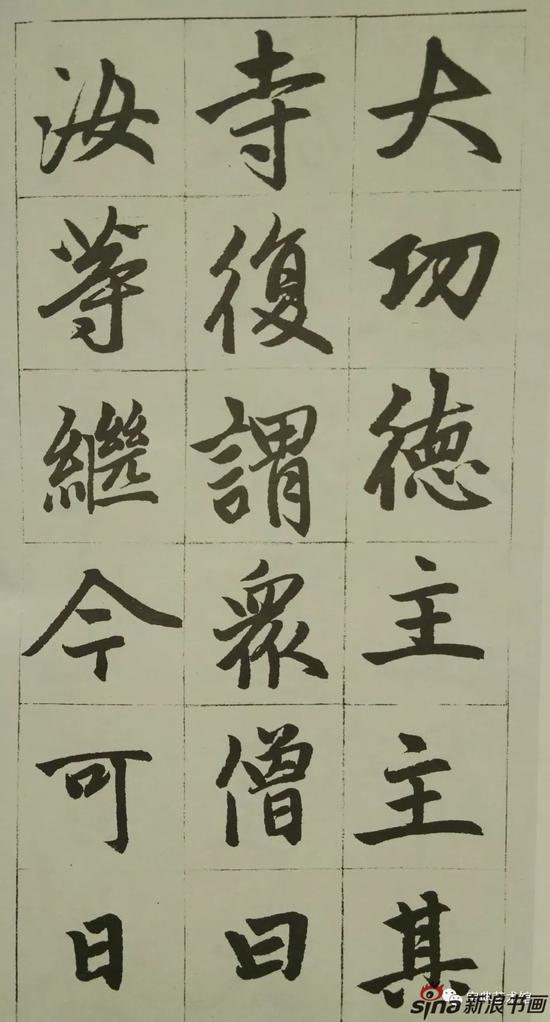 大功徳主主其
寺復謂衆僧曰
汝等繼今可日
sina新浪书画